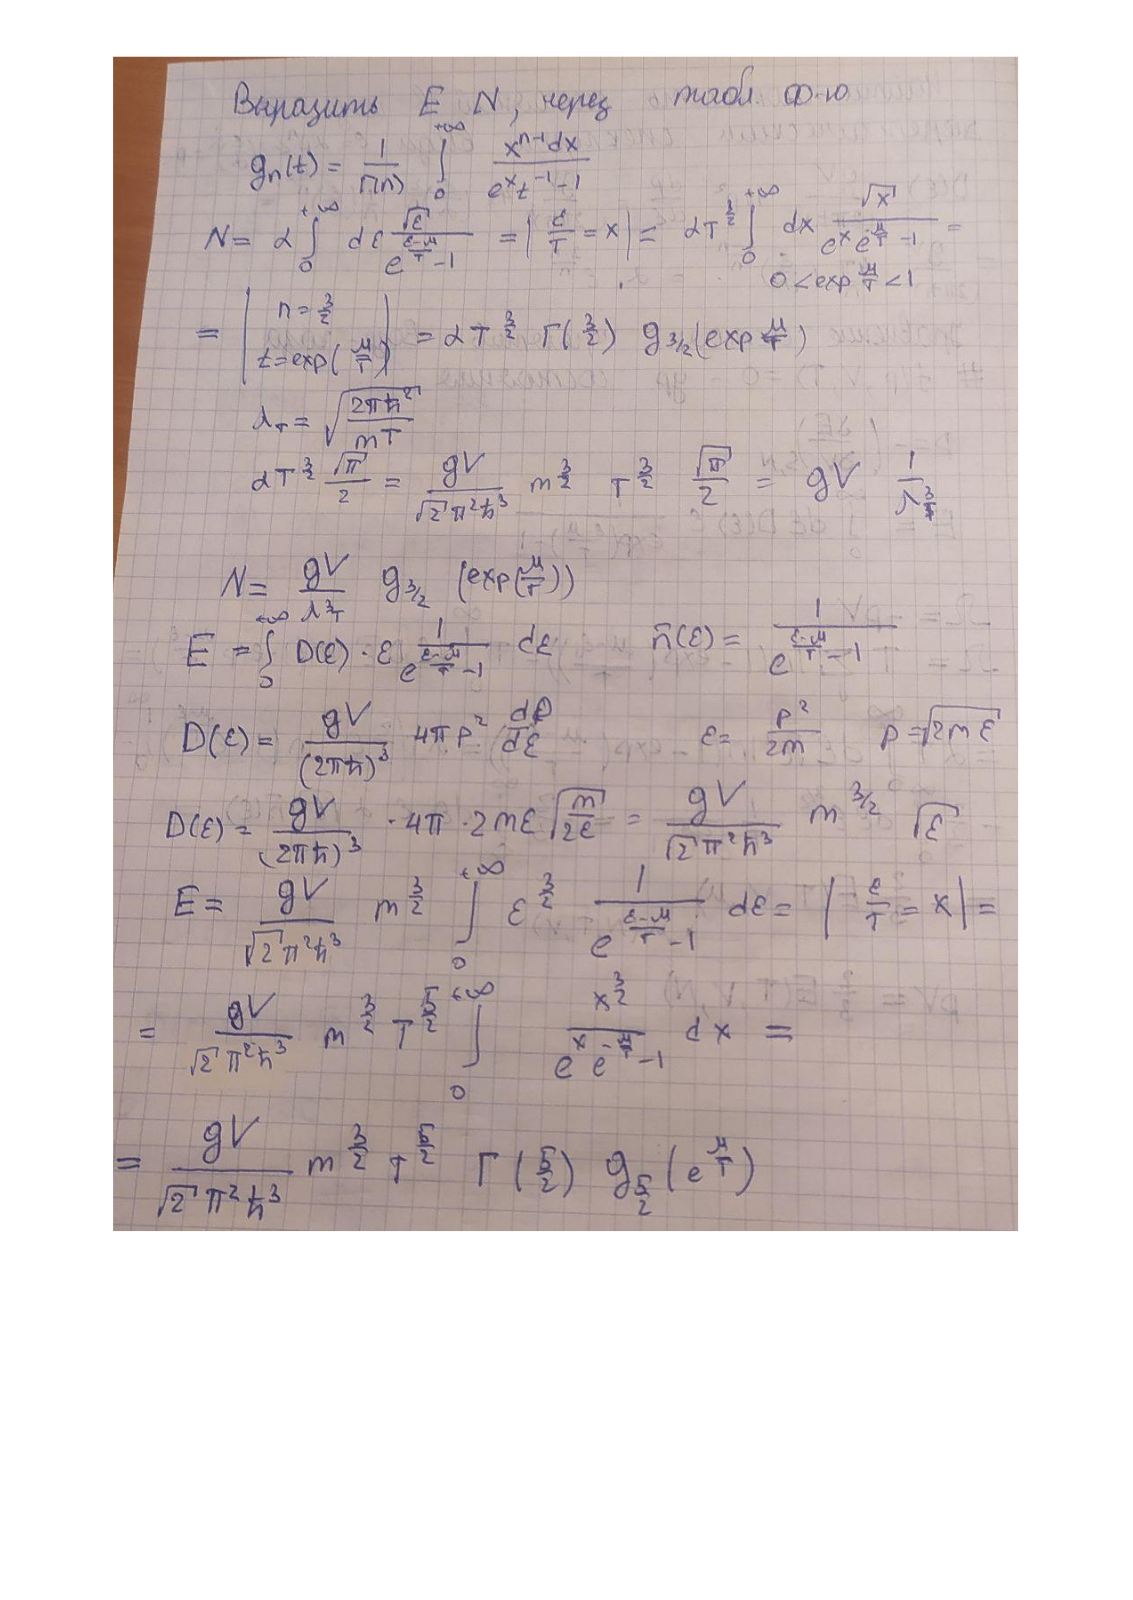 Выразить E N, через табл. ф-ю
g_n(z) = 1/Γ(n) ∫_0^{+∞} x^{n-1}dx / (e^x z^{-1} - 1)
N = α ∫_0^{+∞} dε √ε / (e^{(ε-μ)/T} - 1) = | ε/T = x | = αT^{3/2} ∫_0^{+∞} dx √x / (e^x e^{-μ/T} - 1) =
0 < exp μ/T < 1
= | n = 3/2 z = exp(μ/T) | = αT^{3/2} Γ(3/2) g_{3/2}(exp μ/T)
λ_T = √(2πħ²/mT)
αT^{3/2} √π/2 = gV/(√2 π²ħ³) m^{3/2} T^{3/2} √π/2 = gV 1/λ_T^3
N = gV/λ_T^3 g_{3/2} (exp(μ/T))
E = ∫_0^{+∞} D(ε) · ε 1/(e^{(ε-μ)/T} - 1) dε n̄(ε) = 1/(e^{(ε-μ)/T} - 1)
D(ε) = gV/(2πħ)³ 4πp² dp/dε ε = p²/2m p = √(2mε)
D(ε) = gV/(2πħ)³ · 4π · 2mε √(m/2ε) = gV/(√2 π²ħ³) m^{3/2} √ε
E = gV/(√2 π²ħ³) m^{3/2} ∫_0^{+∞} ε^{3/2} 1/(e^{(ε-μ)/T} - 1) dε = | ε/T = x | =
= gV/(√2 π²ħ³) m^{3/2} T^{5/2} ∫_0^{+∞} x^{3/2} / (e^x e^{-μ/T} - 1) dx =
= gV/(√2 π²ħ³) m^{3/2} T^{5/2} Γ(5/2) g_{5/2}(e^{μ/T})